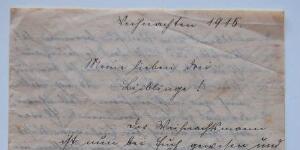 Weihnachten 1946.
Meine lieben drei
Lieblinge!
Der Weihnachtsmann
ist nun bei Euch gewesen und